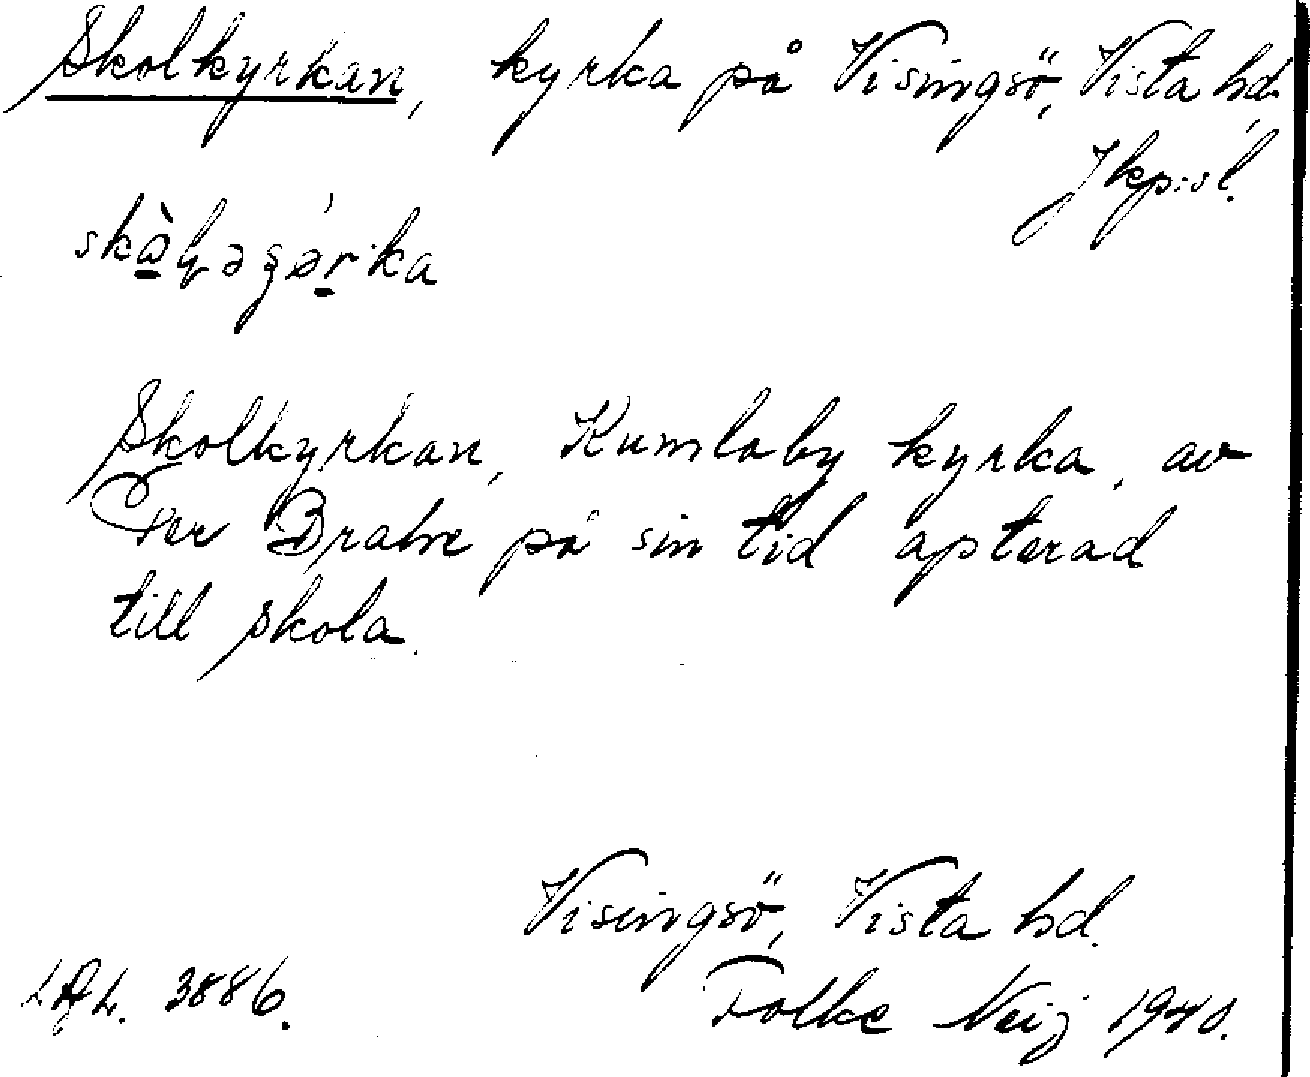 Skolkyrkan, kyrka på Visingsö, Vista hd,
Jkpsl.
Skolkyrkan, Kumlaby kyrka, av
Per Brahe på sin tid apterad
till skola.
Visingsö, Vista hd.
3886. Folke Neij 1940.